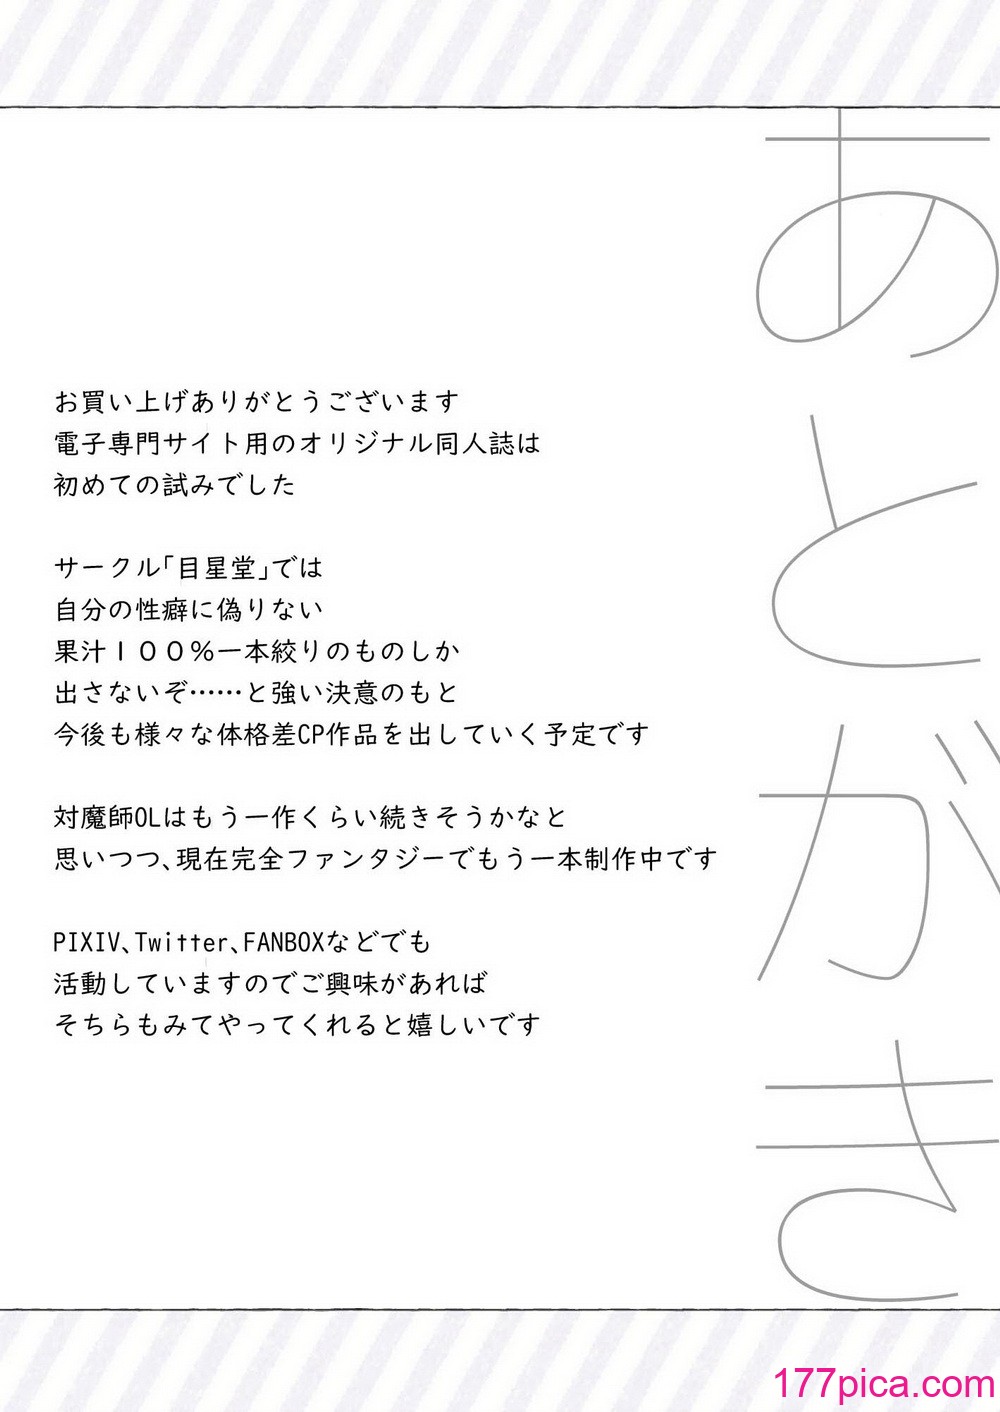 あとがき
お買い上げありがとうございます
電子専門サイト用のオリジナル同人誌は
初めての試みでした
サークル｢目星堂｣では
自分の性癖に偽りない
果汁１００％一本絞りのものしか
出さないぞ……と強い決意のもと
今後も様々な体格差CP作品を出していく予定です
対魔師OLはもう一作くらい続きそうかなと
思いつつ､現在完全ファンタジーでもう一本制作中です
PIXIV､Twitter､FANBOXなどでも
活動していますのでご興味があれば
そちらもみてやってくれると嬉しいです
177pica.com